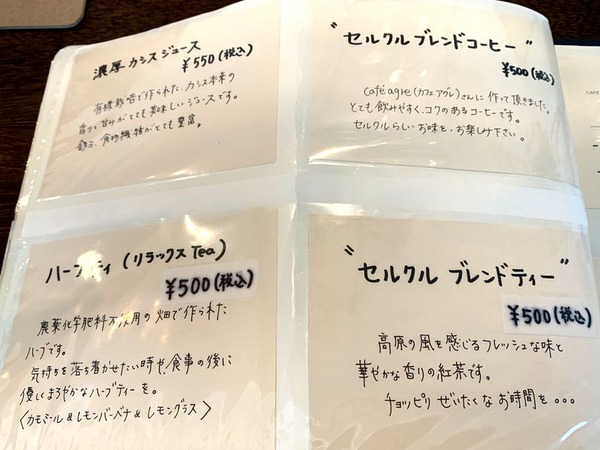 濃厚カシスジュース
¥550(税込)
有機栽培で作られた、カシス本来の
香りと甘みがとても美味しいジュースです。
鉄分、食物繊維がとても豊富。
"セルクルブレンドコーヒー"
¥500(税込)
café agre(カフェアグレ)さんに作って頂きました。
とても飲みやすく、コクのあるコーヒーです。
セルクルらしいお味を、お楽しみ下さい。
ハーブティ(リラックスTea)
¥500(税込)
農薬化学肥料不使用の畑で作られた
ハーブです。
気持ちを落ち着かせたい時や、食事の後に
優しくまろやかなハーブティーを。
〈カモミール&レモンバーベナ&レモングラス〉
"セルクル ブレンドティー"
¥500(税込)
高原の風を感じるフレッシュな味と
華やかな香りの紅茶です。
チョッピリ ぜいたくな お時間を...